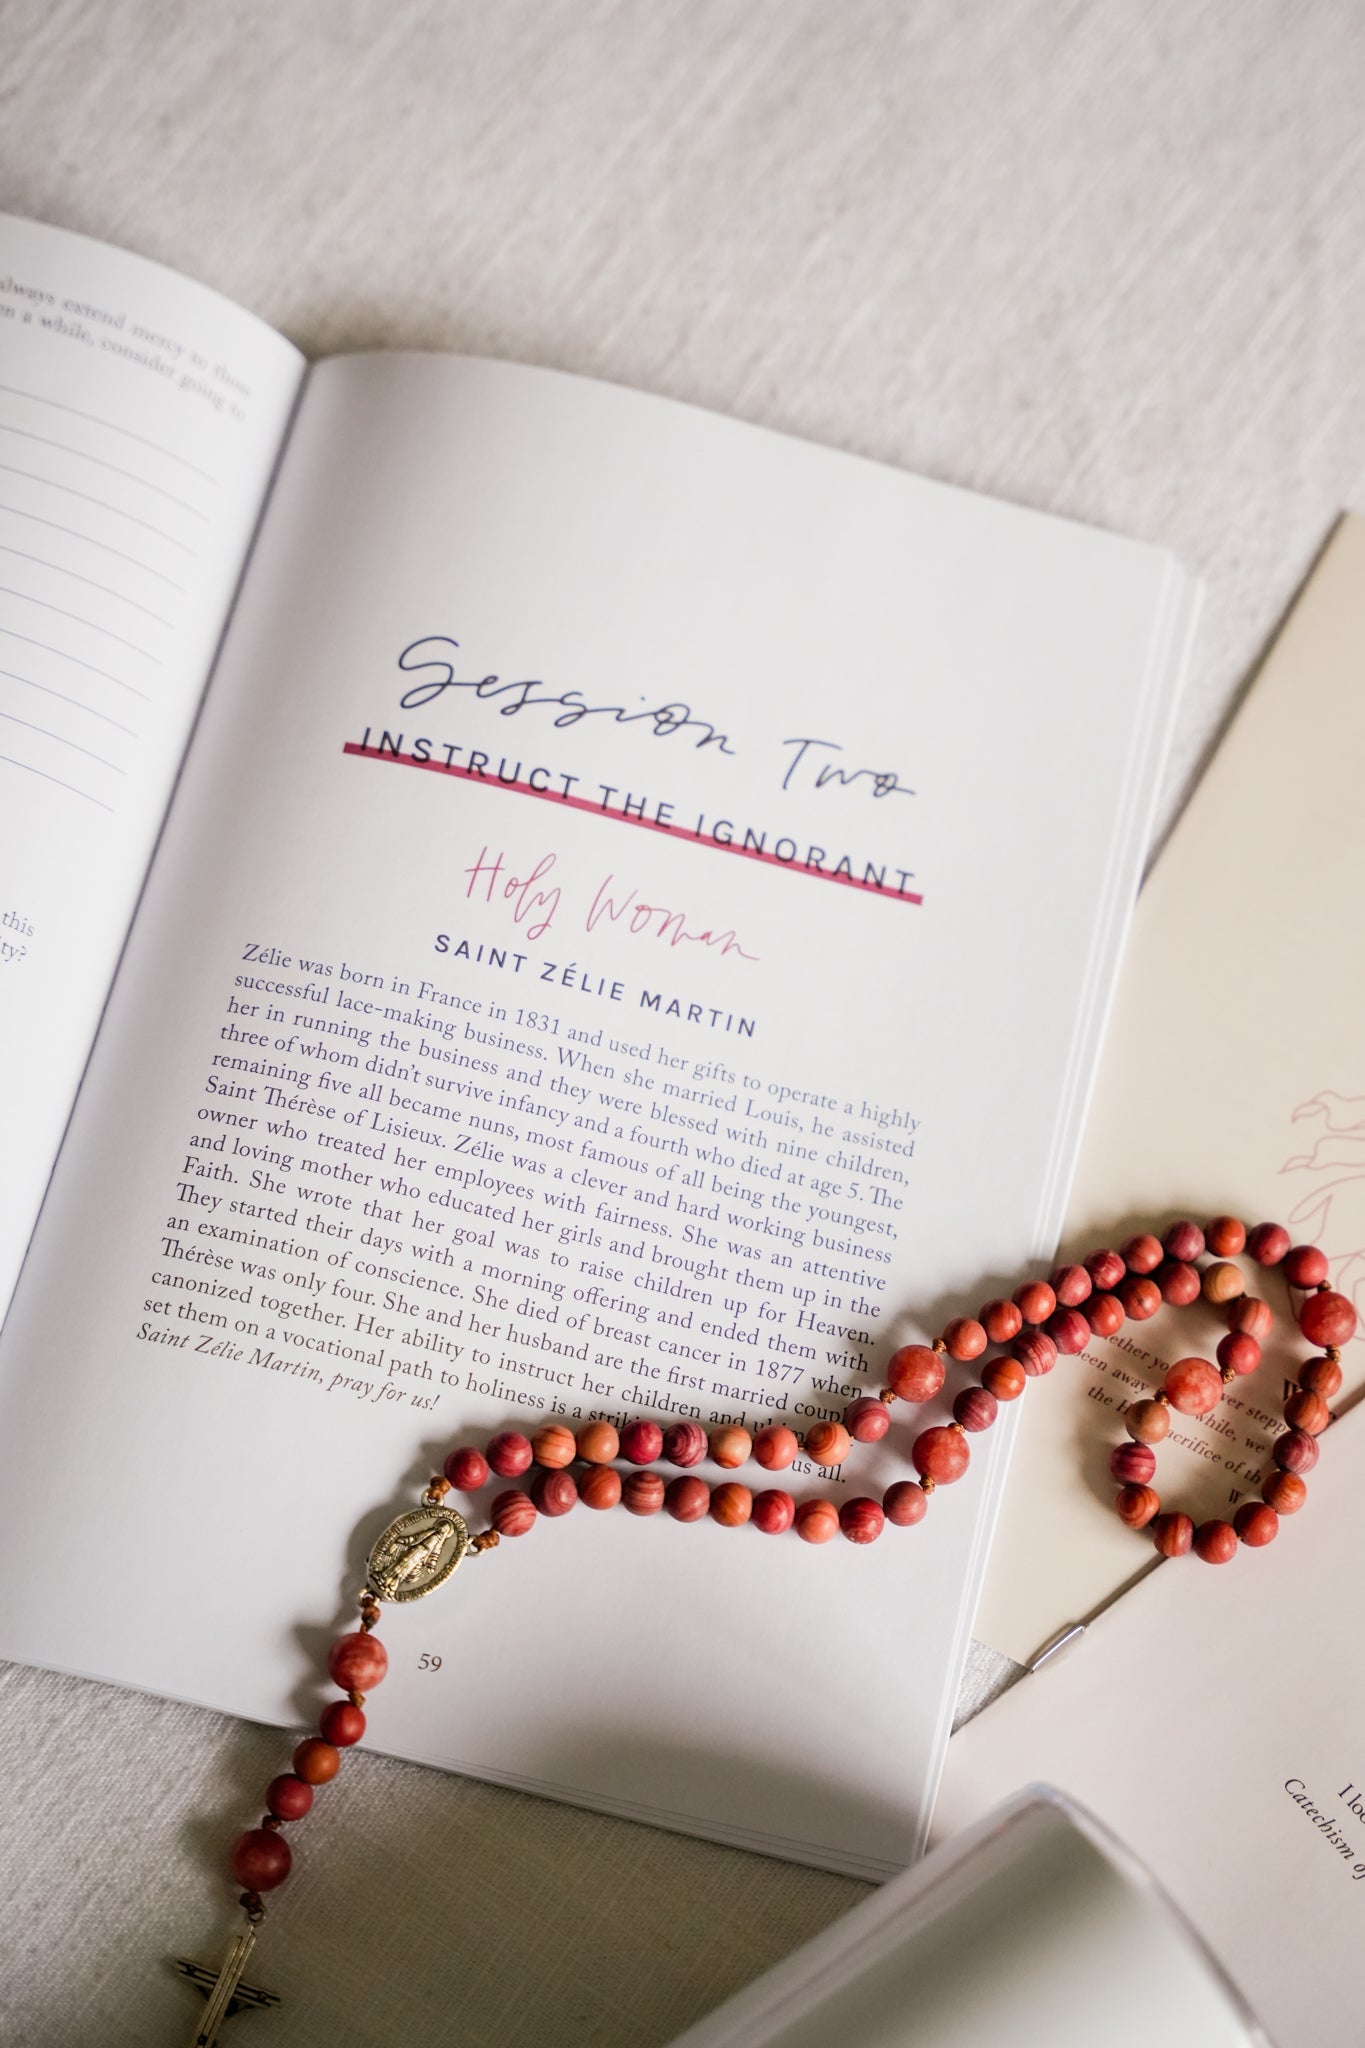 always extend mercy to those
a while, consider going to
this
Session Two
INSTRUCT THE IGNORANT
Holy Woman
SAINT ZÉLIE MARTIN
Zélie was born in France in 1831 and used her gifts to operate a highly
successful lace-making business. When she married Louis, he assisted
her in running the business and they were blessed with nine children,
three of whom didn't survive infancy and a fourth who died at age 5. The
remaining five all became nuns, most famous of all being the youngest,
Saint Thérèse of Lisieux. Zélie was a clever and hard working business
owner who treated her employees with fairness. She was an attentive
and loving mother who educated her girls and brought them up in the
Faith. She wrote that her goal was to raise children up for Heaven.
They started their days with a morning offering and ended them with
an examination of conscience. She died of breast cancer in 1877 when
Thérèse was only four. She and her husband are the first married
canonized together. Her ability to instruct her children and
set them on a vocational path to holiness is a
us all.
Saint Zélie Martin, pray for us!
59
been away
while, we
the
of
Catechism